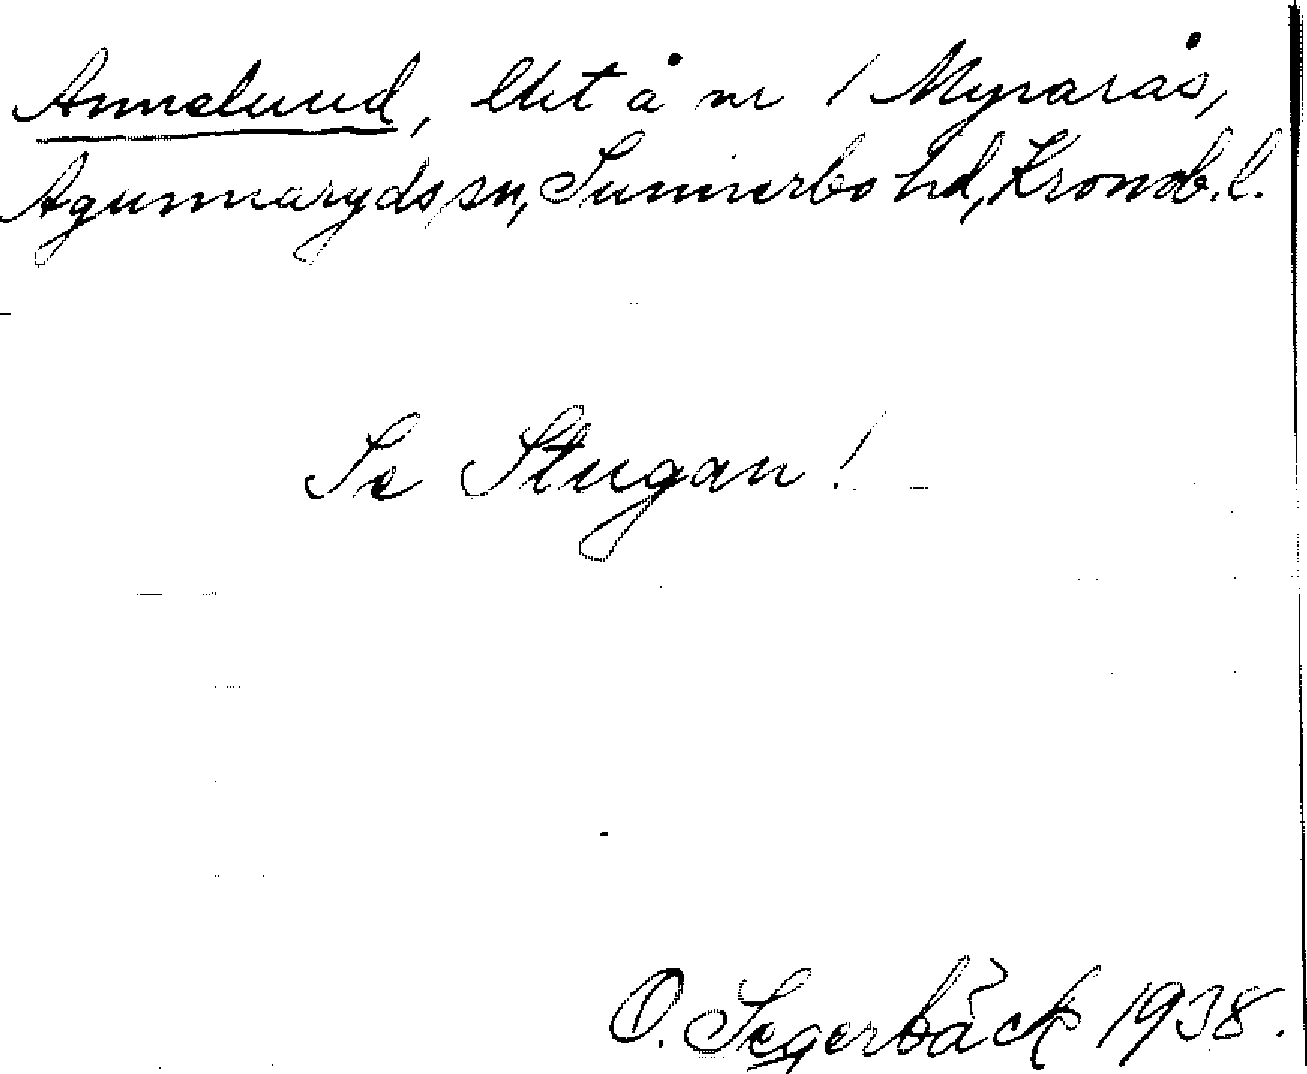 Annelund, lht å nr 1 Myrarås,
Agunnaryds sn, Sunnerbo hd, Kronob. l.
Se Stugan!
O. Segerbäck 1938.